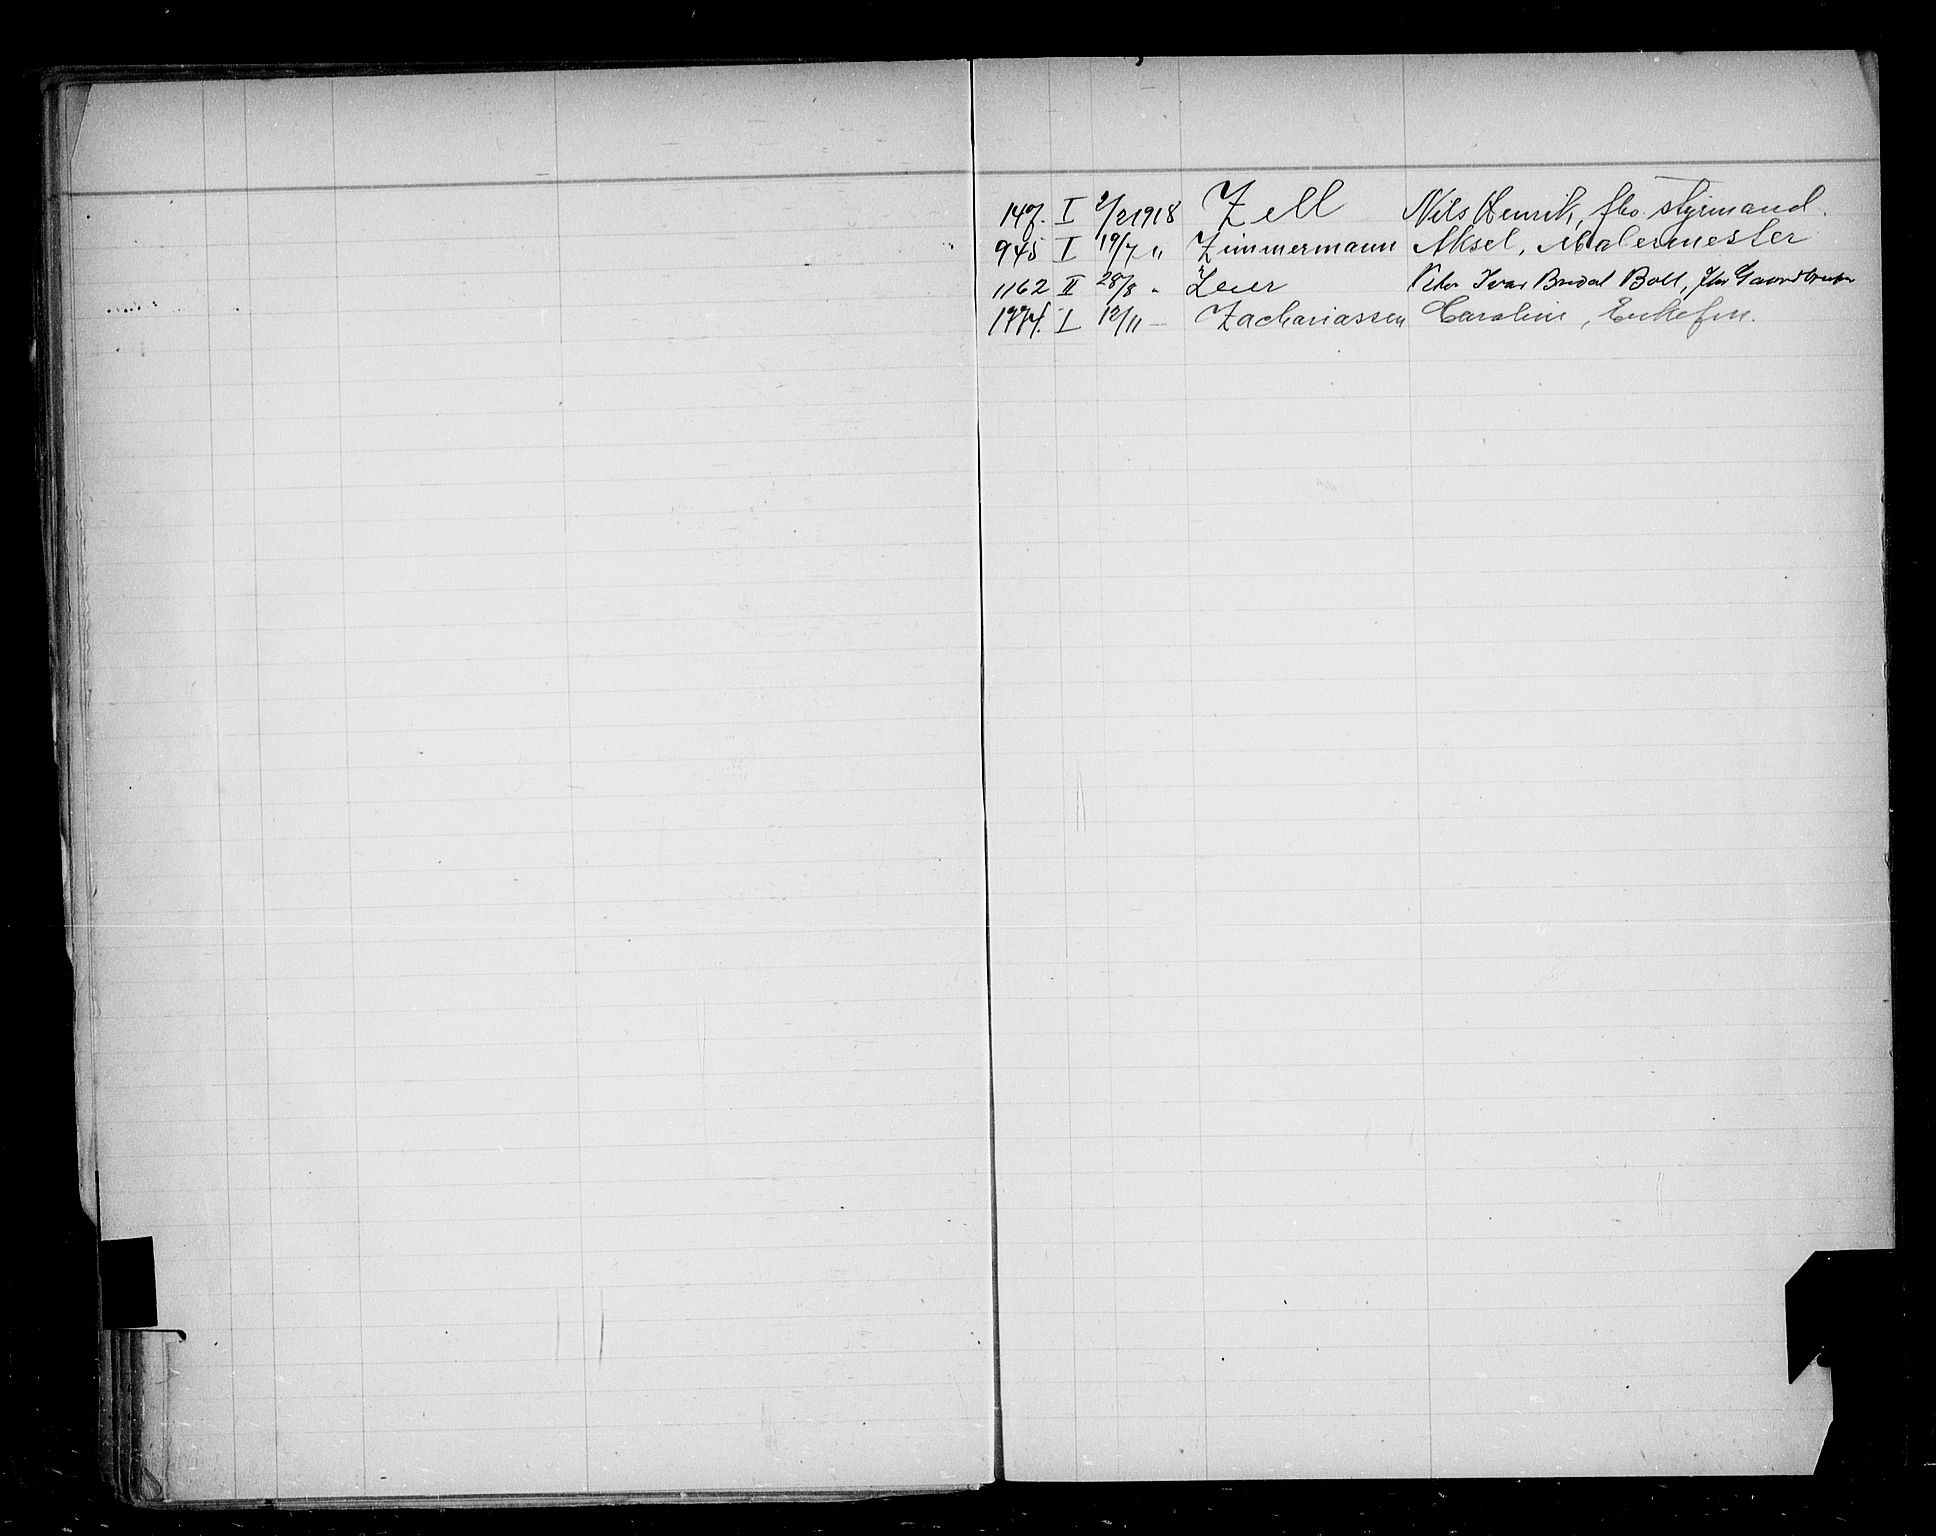 147. I 2/2 1918 Zell Nils Henrik, fhv. styrmand.
945 I 19/7 " Zimmermann Aksel, Malermester
1162 II 28/8 " Zeier Peter Ivar Bredal Boll, fhv Gaardbruker
1774. I 12/11 — Zachariassen Caroline, Enkefru.